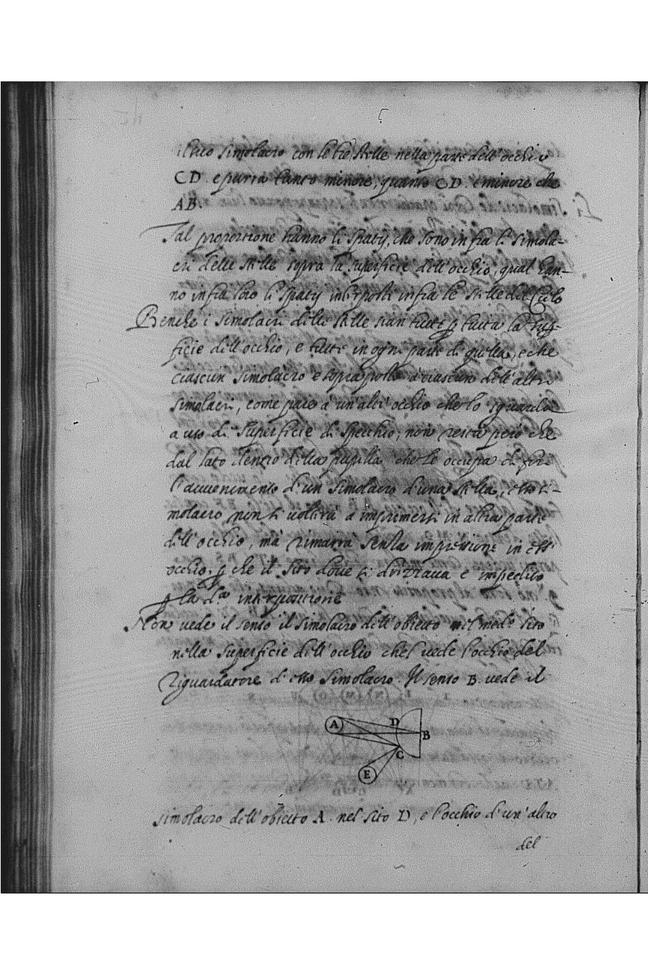 simolacro con le tre stelle nella parte dell'occhio
CD e parrà tanto minore, quanto CD è minore che
AB.
Tal proportione hanno li spatij, che sono infra li simola-
cri delle stelle sopra la superficie dell'occhio, qual han-
no infra loro li spatij interposti infra le stelle del Cielo
Benche i simolacri delle stelle sian tutte p tutta la sup-
ficie dell'occhio, e tutte in ogni parte di quella, e che
ciascun simolacro è sopraposto a ciascun dell'altri
simolacri, come pare a un'altr'occhio che lo sguarda
a uso di superficie di specchio, non resta però che
dal lato della pupilla che le occupa di for
l'avvenimento d'un simolacro d'una stella, esso si-
molacro non si volterà a imprimersi in altra parte
dell'occhio, ma rimarrà senza impressione in ess'
occhio, p che il sito dove si drizzava è impedito
p la d.ª interpositione
Non vede il senso il simolacro dell'obietto nel med.º sito
nella superficie dell'occhio che vede l'occhio del
riguardatore d'esso simolacro. Il senso B. vede il
A
D
B
C
E
simolacro dell'obietto A. nel sito D, e l'occhio d'un'altro
del